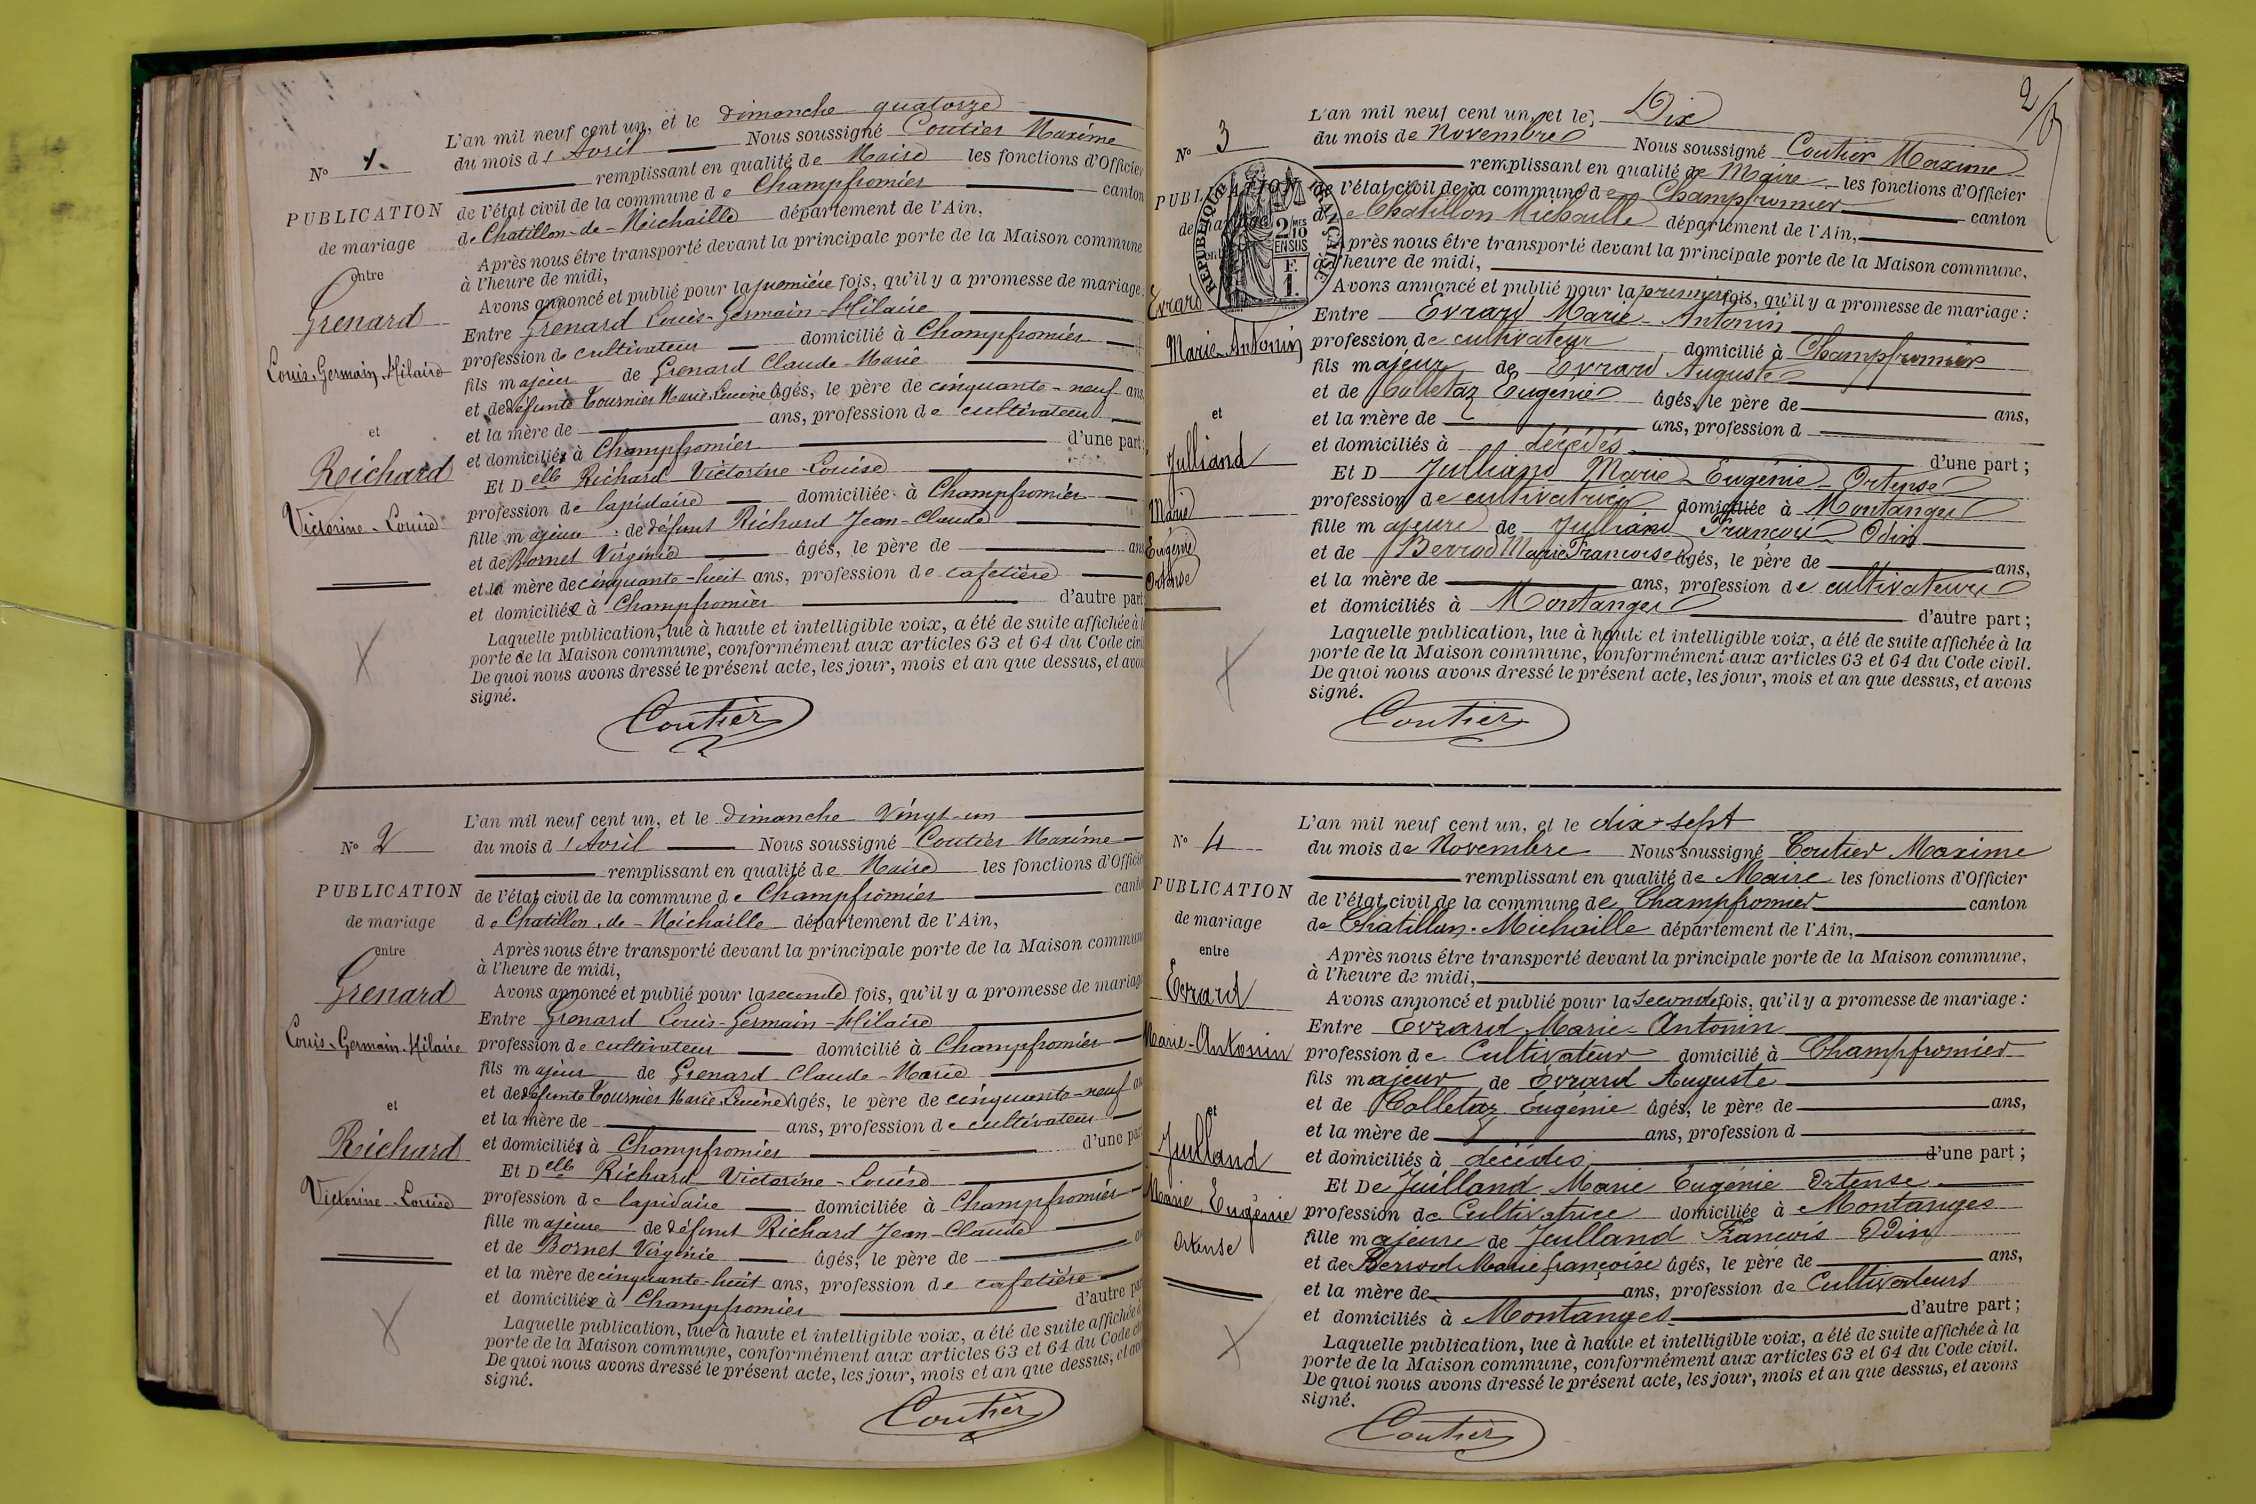 N° 1.
PUBLICATION
de mariage
entre
Grenard
Louis-Germain-Hilaire
et
Reichard
Victorine-Louise
L'an mil neuf cent un, et le dimanche quatorze
du mois d'Avril Nous soussigné Coutier Maxime
remplissant en qualité de Maire les fonctions d'Officier
de l'état civil de la commune de Champfromier canton
de Chatillon-de-Michaille département de l'Ain,
Après nous être transporté devant la principale porte de la Maison commune
à l'heure de midi,
Avons annoncé et publié pour la première fois, qu'il y a promesse de mariage
Entre Grenard Louis-Germain-Hilaire
profession de cultivateur domicilié à Champfromier
fils majeur de Grenard Claude-Marie
et de défunte Tournier Marie-Lucine âgés, le père de cinquante-neuf ans
et la mère de ans, profession de cultivateur
et domiciliés à Champfromier d'une part;
Et Delle Richard Victorine-Louise
profession de lapidaire domiciliée à Champfromier
fille majeure de défunt Richard Jean-Claude
et de Bornet Virginie âgés, le père de ans
et la mère de cinquante-huit ans, profession de cafetière
et domiciliée à Champfromier d'autre part
Laquelle publication, lue à haute et intelligible voix, a été de suite affichée à la
porte de la Maison commune, conformément aux articles 63 et 64 du Code civil
De quoi nous avons dressé le présent acte, les jour, mois et an que dessus, et avons
signé.
Coutier
N° 2
PUBLICATION
de mariage
entre
Grenard
Louis-Germain-Hilaire
et
Richard
Victorine-Louise
L'an mil neuf cent un, et le dimanche vingt-un
du mois d'Avril Nous soussigné Coutier Maxime
remplissant en qualité de Maire les fonctions d'Officier
de l'état civil de la commune de Champfromier canton
de Chatillon-de-Michaille département de l'Ain,
Après nous être transporté devant la principale porte de la Maison commune
à l'heure de midi,
Avons annoncé et publié pour la seconde fois, qu'il y a promesse de mariage
Entre Grenard Louis-Germain-Hilaire
profession de cultivateur domicilié à Champfromier
fils majeur de Grenard Claude-Marie
et de défunte Tournier Marie-Lucine âgés, le père de cinquante-neuf ans
et la mère de ans, profession de cultivateur
et domiciliés à Champfromier d'une part
Et Delle Richard Victorine-Louise
profession de lapidaire domiciliée à Champfromier
fille majeure de défunt Richard Jean-Claude
et de Bornet Virginie âgés, le père de
et la mère de cinquante-huit ans, profession de cafetière
et domiciliée à Champfromier d'autre part
Laquelle publication, lue à haute et intelligible voix, a été de suite affichée à
porte de la Maison commune, conformément aux articles 63 et 64 du Code
De quoi nous avons dressé le présent acte, les jour, mois et an que dessus, et avons
signé.
Coutier
2
N° 3
PUBLICATION
de mariage
RÉPUBLIQUE FRANÇAISE
2 MES
10
EN SUS
F.
1.
Evrard
Marie-Antonin
et
Julliand
Marie
Eugénie
Ortense
L'an mil neuf cent un, et le Dix
du mois de Novembre Nous soussigné Coutier Maxime
remplissant en qualité de Maire les fonctions d'Officier
de l'état civil de la commune de Champfromier canton
de Chatillon Michaille département de l'Ain,
Après nous être transporté devant la principale porte de la Maison commune,
à l'heure de midi,
Avons annoncé et publié pour la première fois, qu'il y a promesse de mariage :
Entre Evrard Marie-Antonin
profession de cultivateur domicilié à Champfromier
fils majeur de Evrard Auguste
et de Colletaz Eugenie âgés, le père de ans,
et la mère de ans, profession d
et domiciliés à décédés d'une part ;
Et D Julliand Marie-Eugénie-Ortense
profession de cultivatrice domiciliée à Montanges
fille majeure de Julliand François Odin
et de Berrod Marie Françoise âgés, le père de ans,
et la mère de ans, profession de cultivateurs
et domiciliés à Montanges d'autre part ;
Laquelle publication, lue à haute et intelligible voix, a été de suite affichée à la
porte de la Maison commune, conformément aux articles 63 et 64 du Code civil.
De quoi nous avons dressé le présent acte, les jour, mois et an que dessus, et avons
signé.
Coutier
N° 4
PUBLICATION
de mariage
entre
Evrard
Marie-Antonin
et
Juilland
Marie Eugénie
Ortense
L'an mil neuf cent un, et le dix-sept
du mois de Novembre Nous soussigné Coutier Maxime
remplissant en qualité de Maire les fonctions d'Officier
de l'état civil de la commune de Champfromier canton
de Chatillon-Michaille département de l'Ain,
Après nous être transporté devant la principale porte de la Maison commune,
à l'heure de midi,
Avons annoncé et publié pour la seconde fois, qu'il y a promesse de mariage :
Entre Evrard Marie-Antonin
profession de Cultivateur domicilié à Champfromier
fils majeur de Evrard Auguste
et de Colletaz Eugénie âgés, le père de ans,
et la mère de ans, profession d
et domiciliés à décédés d'une part ;
Et De Juilland Marie Eugénie Ortense
profession de Cultivatrice domiciliée à Montanges
fille majeure de Juilland François Odin
et de Berrod Marie françoise âgés, le père de ans,
et la mère de ans, profession de Cultivateurs
et domiciliés à Montanges d'autre part ;
Laquelle publication, lue à haute et intelligible voix, a été de suite affichée à la
porte de la Maison commune, conformément aux articles 63 et 64 du Code civil.
De quoi nous avons dressé le présent acte, les jour, mois et an que dessus, et avons
signé.
Coutier